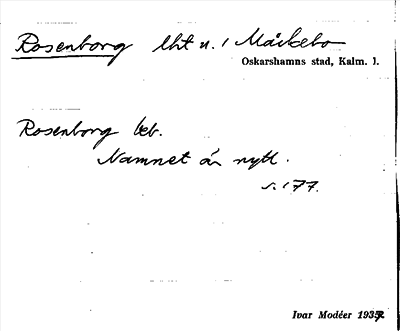 Rosenborg lht u. / Mårkebo
Oskarshamns stad, Kalm. l.
Rosenborg beb.
Namnet är nytt.
s. 177.
Ivar Modéer 1937.